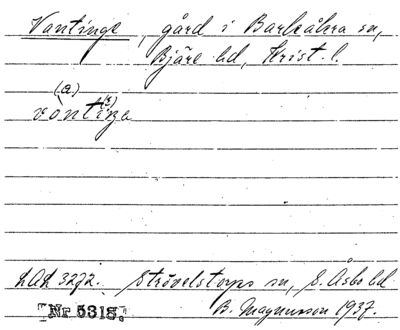 Vantinge, gård i Barkåkra sn,
Bjäre hd, Krist. l.
(a)
(3)
vòntiŋa
LAL 3272. Strövelstorps sn, S. Åsbo hd
Nr 5318. B. Magnusson 1937.